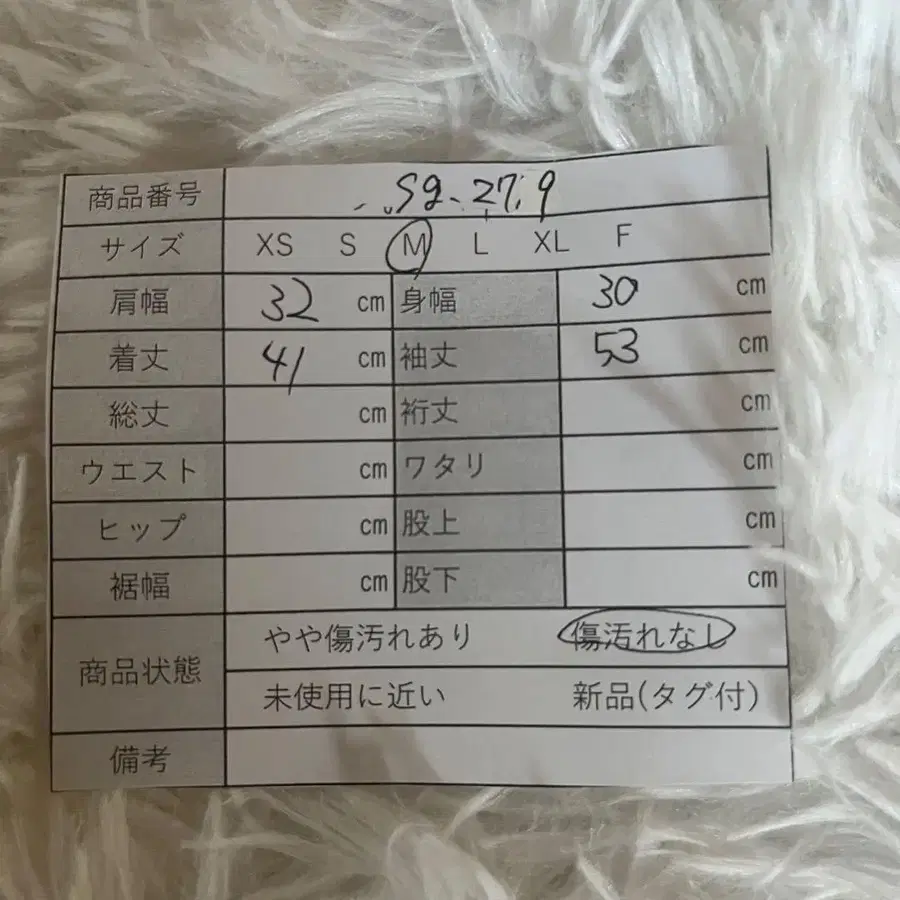 商品番号 S9-27.9
サイズ XS S M L XL F
肩幅 32 cm 身幅 30 cm
着丈 41 cm 袖丈 53 cm
総丈 cm 裄丈 cm
ウエスト cm ワタリ cm
ヒップ cm 股上 cm
裾幅 cm 股下 cm
商品状態 やや傷汚れあり 傷汚れなし
未使用に近い 新品(タグ付)
備考